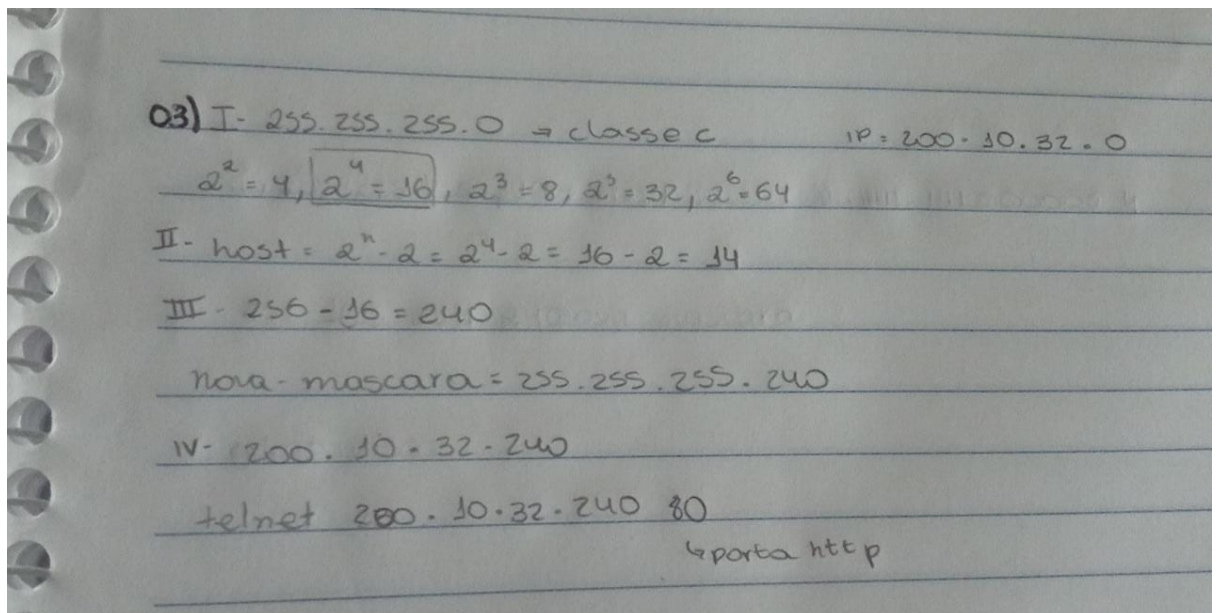 03) I- 255.255.255.0 → classe c IP = 200.10.32.0
2² = 4, 2⁴ = 16, 2³ = 8, 2⁵ = 32, 2⁶ = 64
II- host = 2ⁿ - 2 = 2⁴ - 2 = 16 - 2 = 14
III - 256 - 16 = 240
nova-mascara = 255.255.255.240
IV- 200.10.32.240
telnet 200.10.32.240 80
↳ porta http